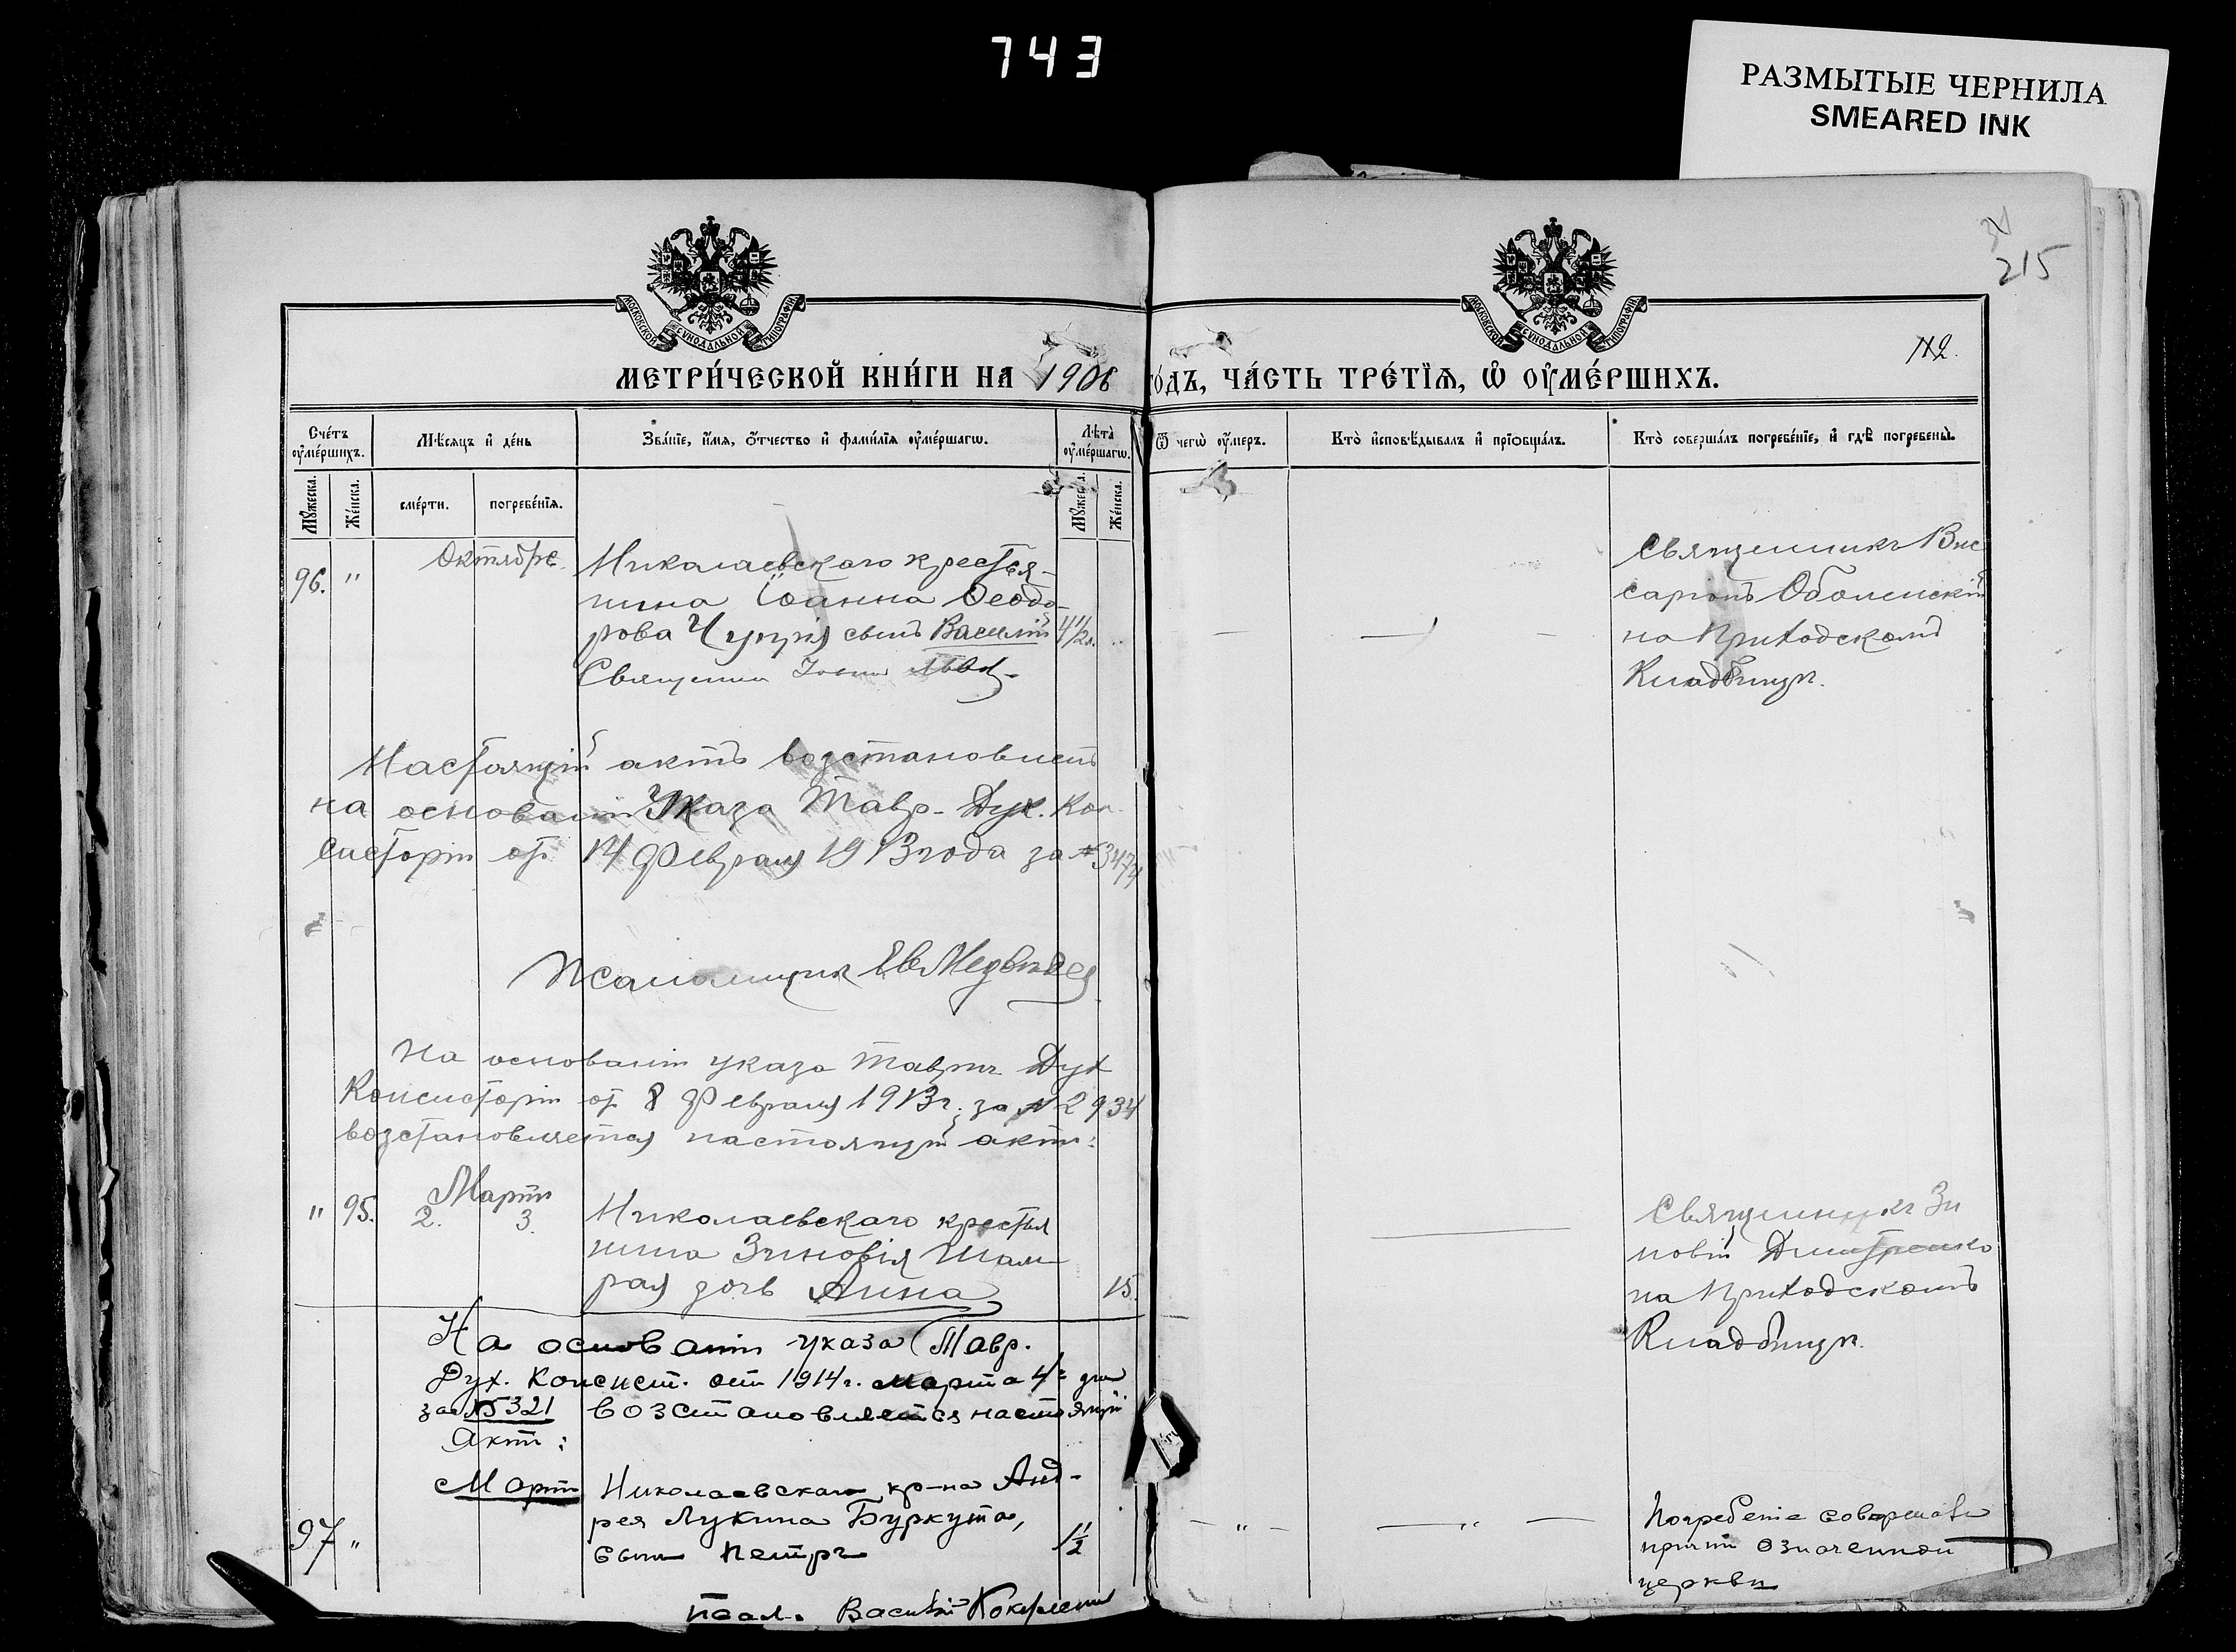 743
РАЗМЫТЫЕ ЧЕРНИЛА
SMEARED INK
215
112.
МОСКОВСКОЙ СѴНОДАЛЬНОЙ ТИПОГРАФІИ
МОСКОВСКОЙ СѴНОДАЛЬНОЙ ТИПОГРАФІИ
МЕТРИ́ЧЕСКОЙ КНИ́ГИ НА 1906 ГО́ДЪ, ЧА́СТЬ ТРЕ́ТЇѦ, Ѽ ОУ҆МЕ́РШИХЪ.
Сче́тъ оу҆ме́ршихъ.
Мѣ́сяцъ и҆ де́нь
Зва́нїе, и҆́мя, ѻ҆́тчество и҆ фами́лїя оу҆ме́ршагѡ.
Лѣ́та оу҆ме́ршагѡ.
Ѿ чегѡ̀ оу҆́меръ.
Кто̀ и҆сповѣ́дывалъ и҆ прїѡбща́лъ.
Кто̀ соверша́лъ погребе́нїе, и҆ гдѣ̀ погребены̀.
Мꙋ́жеска.
Же́нска.
сме́рти.
погребе́нїя.
Мꙋ́жеска.
Же́нска.
96. " Октябрь Николаевскаго крестья-
нина Іоанна Ѳеодо-
рова сынъ Василій 4 1/2
Священникъ
Священникъ Вис
саріонъ Оболенскій
на Приходскомъ
Кладбищѣ.
Настоящій актъ возстановленъ
на основаніи Указа Тавр. Дух. Кон-
систоріи от 14 Февраля 1913 года за № 3474
Псаломщик Ев. Медвѣдев
На основаніи указа Таврич Дух
Консисторіи от 8 Февраля 1913 г. за № 2934
возстановляется настоящій актъ:
" 95. Мартъ 2. 3. Николаевскаго крестья
нина Зиновія Шам
рая дочь Анна 15.
Священникъ Зи
новій Дмитренко
на Приходскомъ
Кладбищѣ.
На основаніи указа Тавр.
Дух. Консист. от 1914 г. марта 4 дня
за № 5321 возстановляется настоящій
Акт:
Март Николаевскаго кр-на Анд-
рея Лукина Буркута,
97 " сынъ Петръ 1 1/2
Погребеніе совершалъ
причтъ означенной
церкви
Псал. Василій